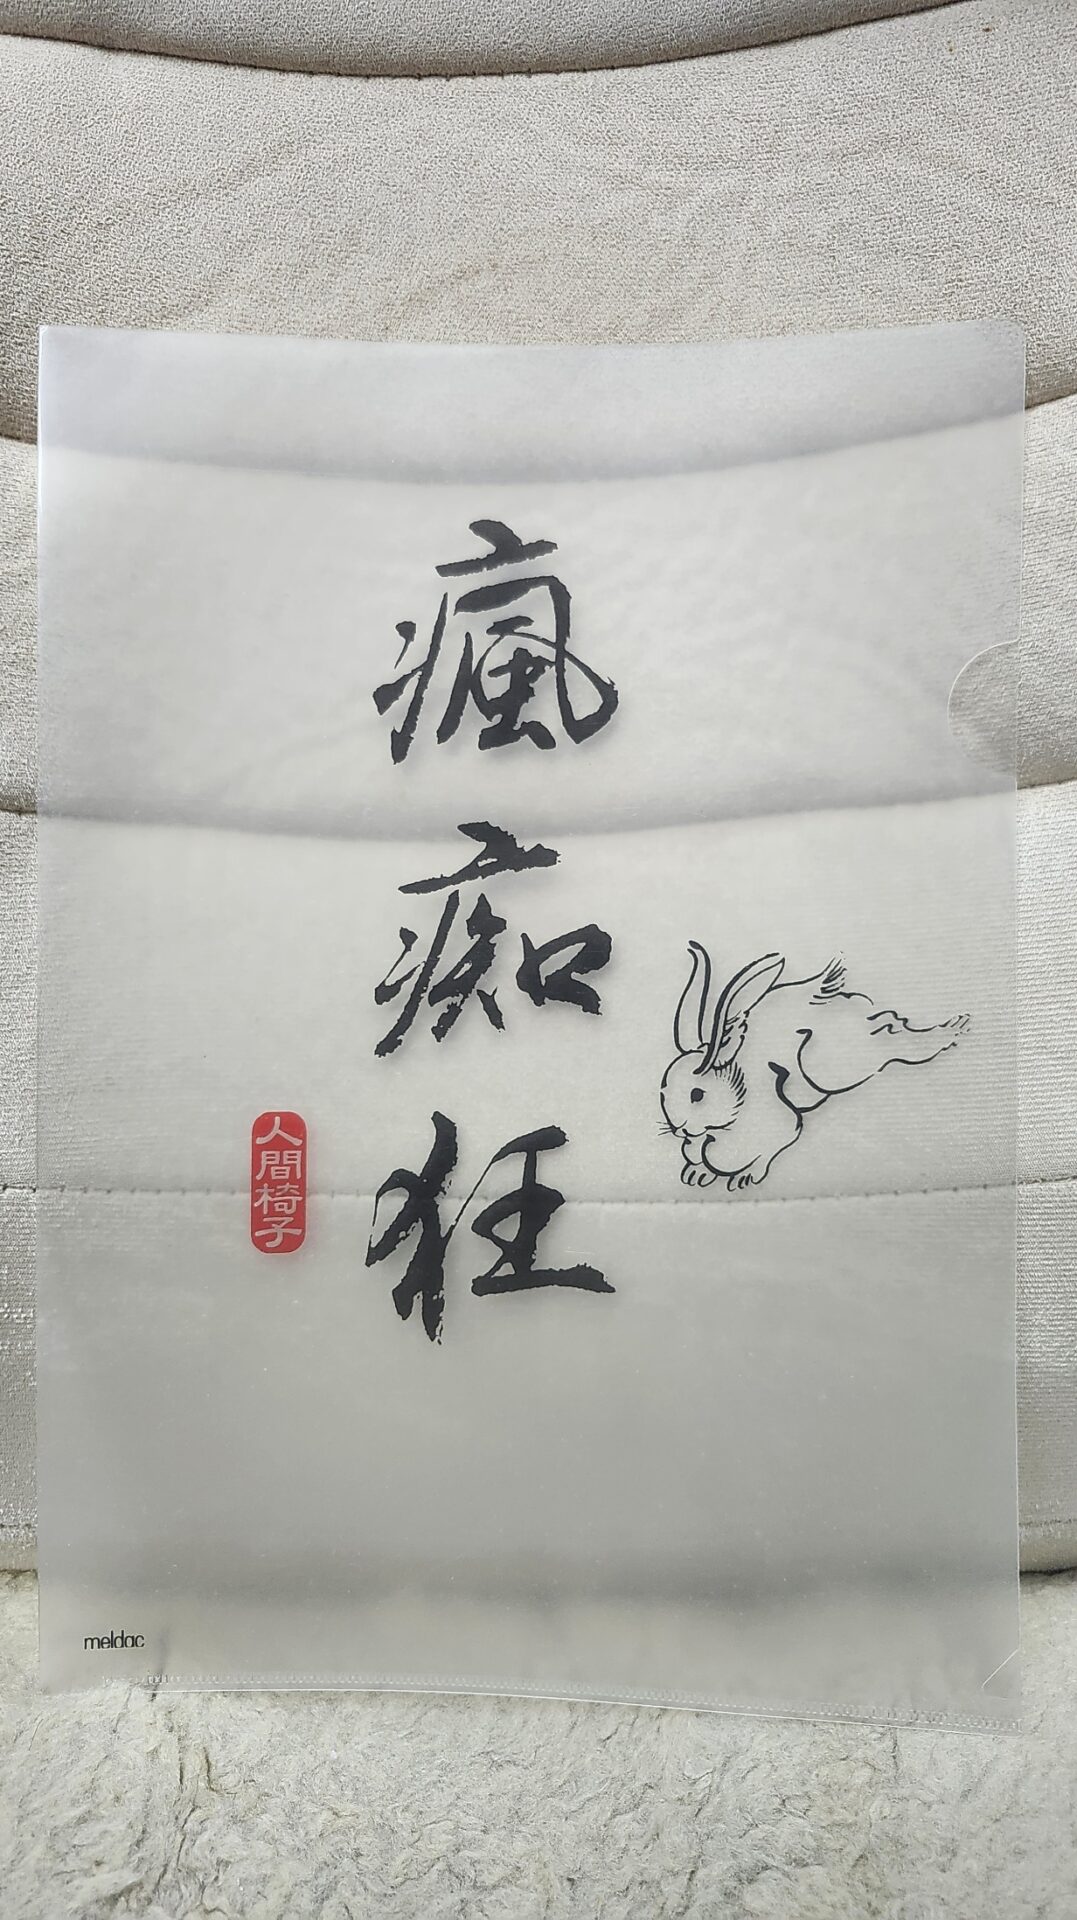 瘋
痴
狂
人間椅子
meldac